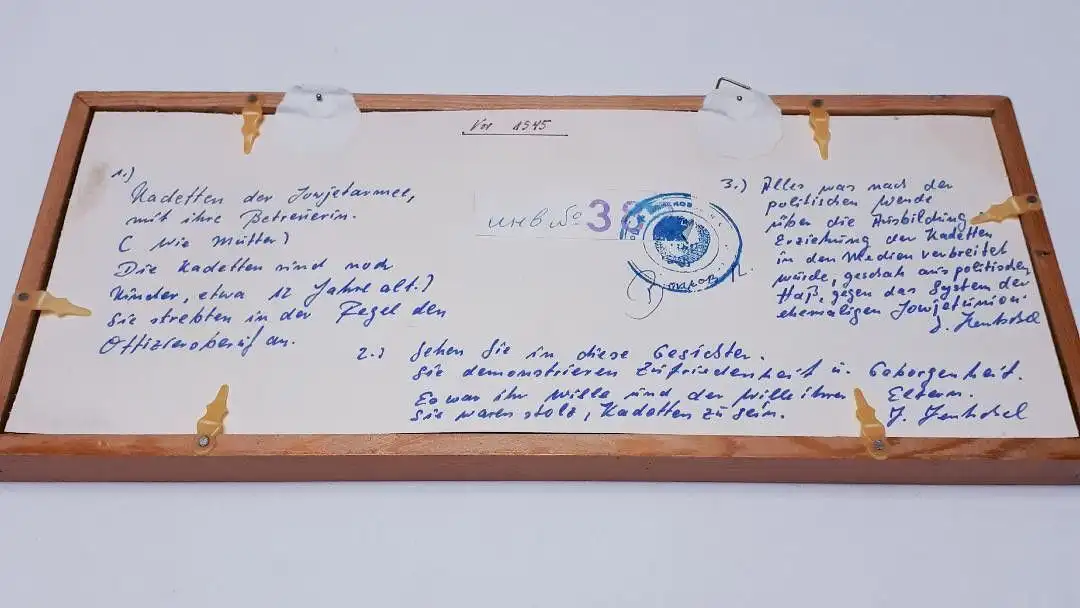 Vor 1945
1.)
Kadetten der Sowjetarmee,
mit ihre Betreuerin.
( wie Mütter)
Die Kadetten sind noch
Kinder, etwa 12 Jahre alt.)
Sie strebten in der Regel den
Offiziersberuf an.
инв № 38
2.) Sehen Sie in diese Gesichter.
Sie demonstrieren Zufriedenheit u. Geborgenheit.
Es war ihr Wille und der Wille ihrer Eltern.
Sie waren stolz, Kadetten zu sein.
3.) Alles was nach der
politischen Wende
über die Ausbildung
Erziehung der Kadetten
in den Medien verbreitet
würde, geschah aus politischen
Haß, gegen das System der
ehemaligen Sowjetunion.